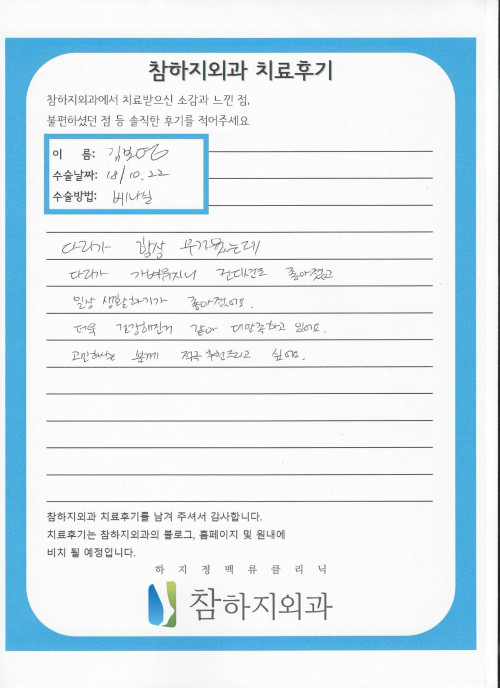 참하지외과 치료후기
참하지외과에서 치료받으신 소감과 느낀 점,
불편하셨던 점 등 솔직한 후기를 적어주세요
이 름: 김보영
수술날짜: 18/10.22
수술방법: 베나실
다리가 항상 무거웠는데
다리가 가벼워지니 컨디션도 좋아졌고
일상 생활하기가 좋아졌어요.
더욱 건강해진거 같아 대만족하고 있어요.
고민하시는 분께 적극 추천드리고 싶어요.
참하지외과 치료후기를 남겨 주셔서 감사합니다.
치료후기는 참하지외과의 블로그, 홈페이지 및 원내에
비치 될 예정입니다.
하지정맥류클리닉
참하지외과